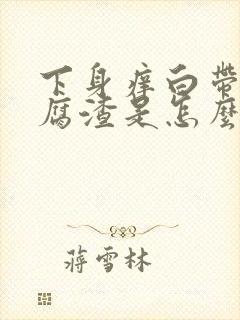 下身痒白带
腐渣是怎麼
蒋雪林